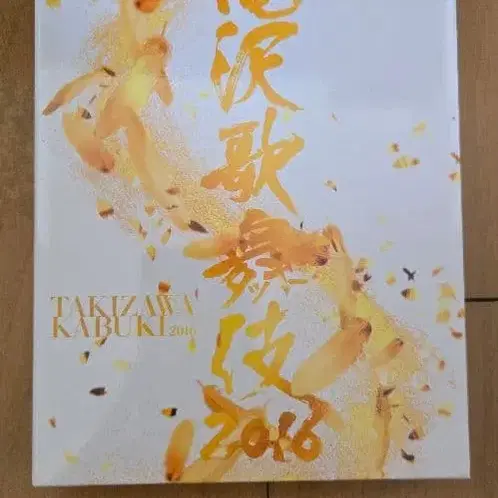 滝沢歌舞伎
2016
TAKIZAWA
KABUKI 2016